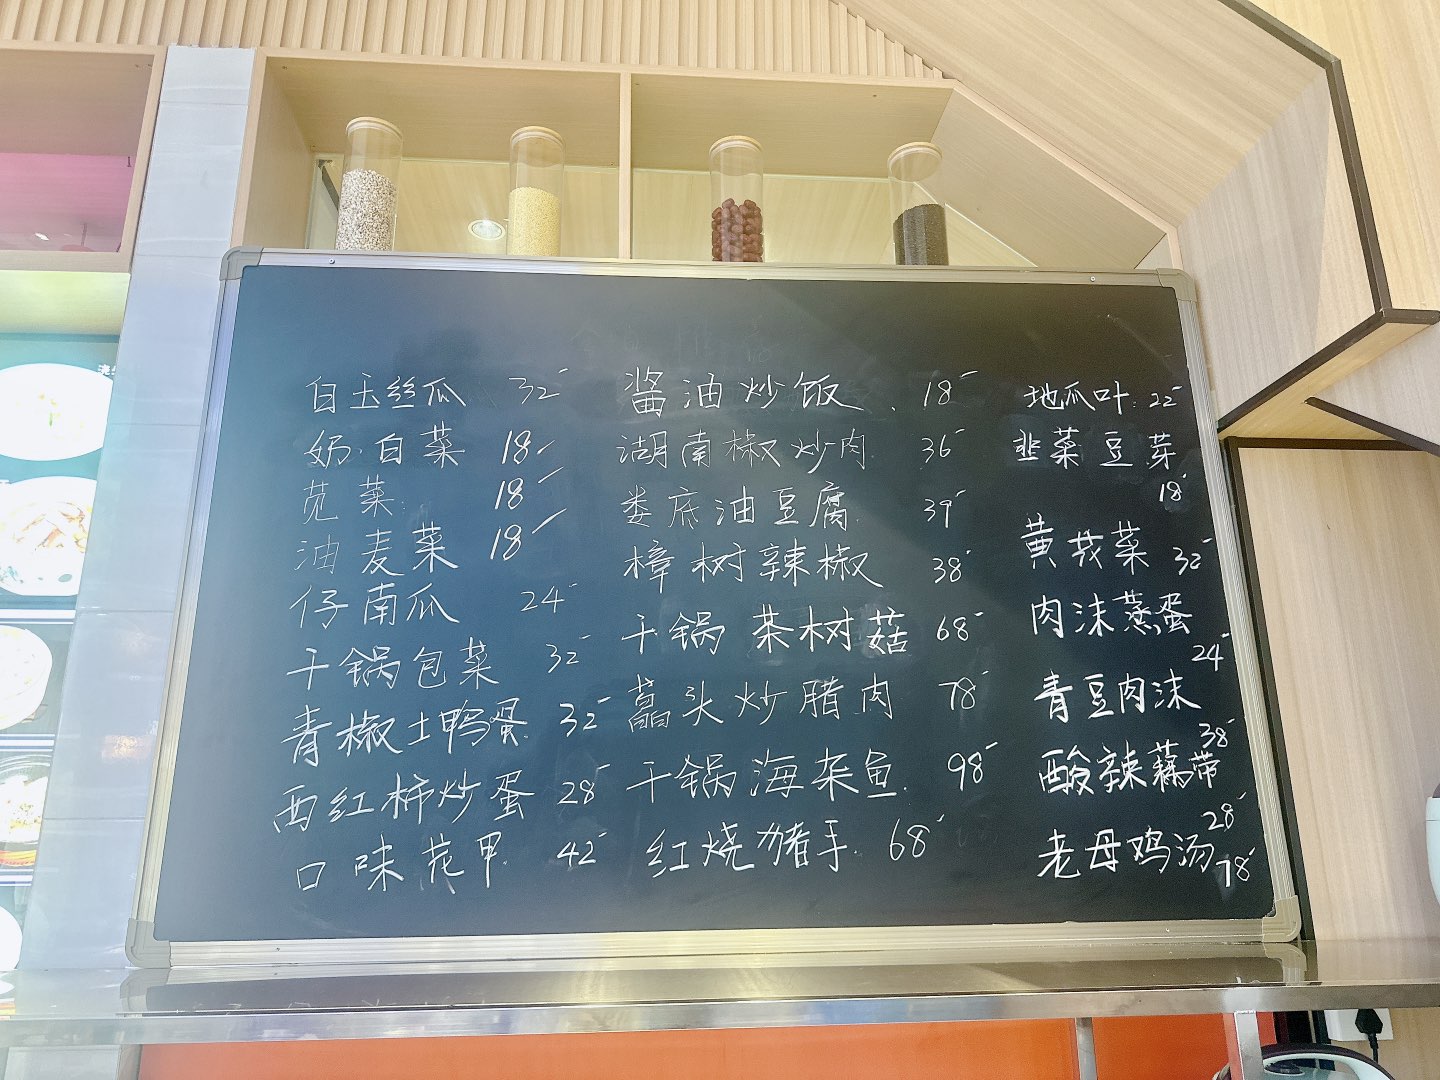 白玉丝瓜 32
奶白菜 18
苋菜: 18
油麦菜 18
仔南瓜 24
干锅包菜 32
青椒土鸭蛋 32
西红柿炒蛋 28
口味花甲 42
酱油炒饭 18
湖南椒炒肉 36
娄底油豆腐 39
樟树辣椒 38
干锅茶树菇 68
藠头炒腊肉 78
干锅海杂鱼 98
红烧猪手 68
地瓜叶: 22
韭菜豆芽
18
黄菜 32
肉沫蒸蛋
24
青豆肉沫
38
酸辣藕带
28
老母鸡汤 78